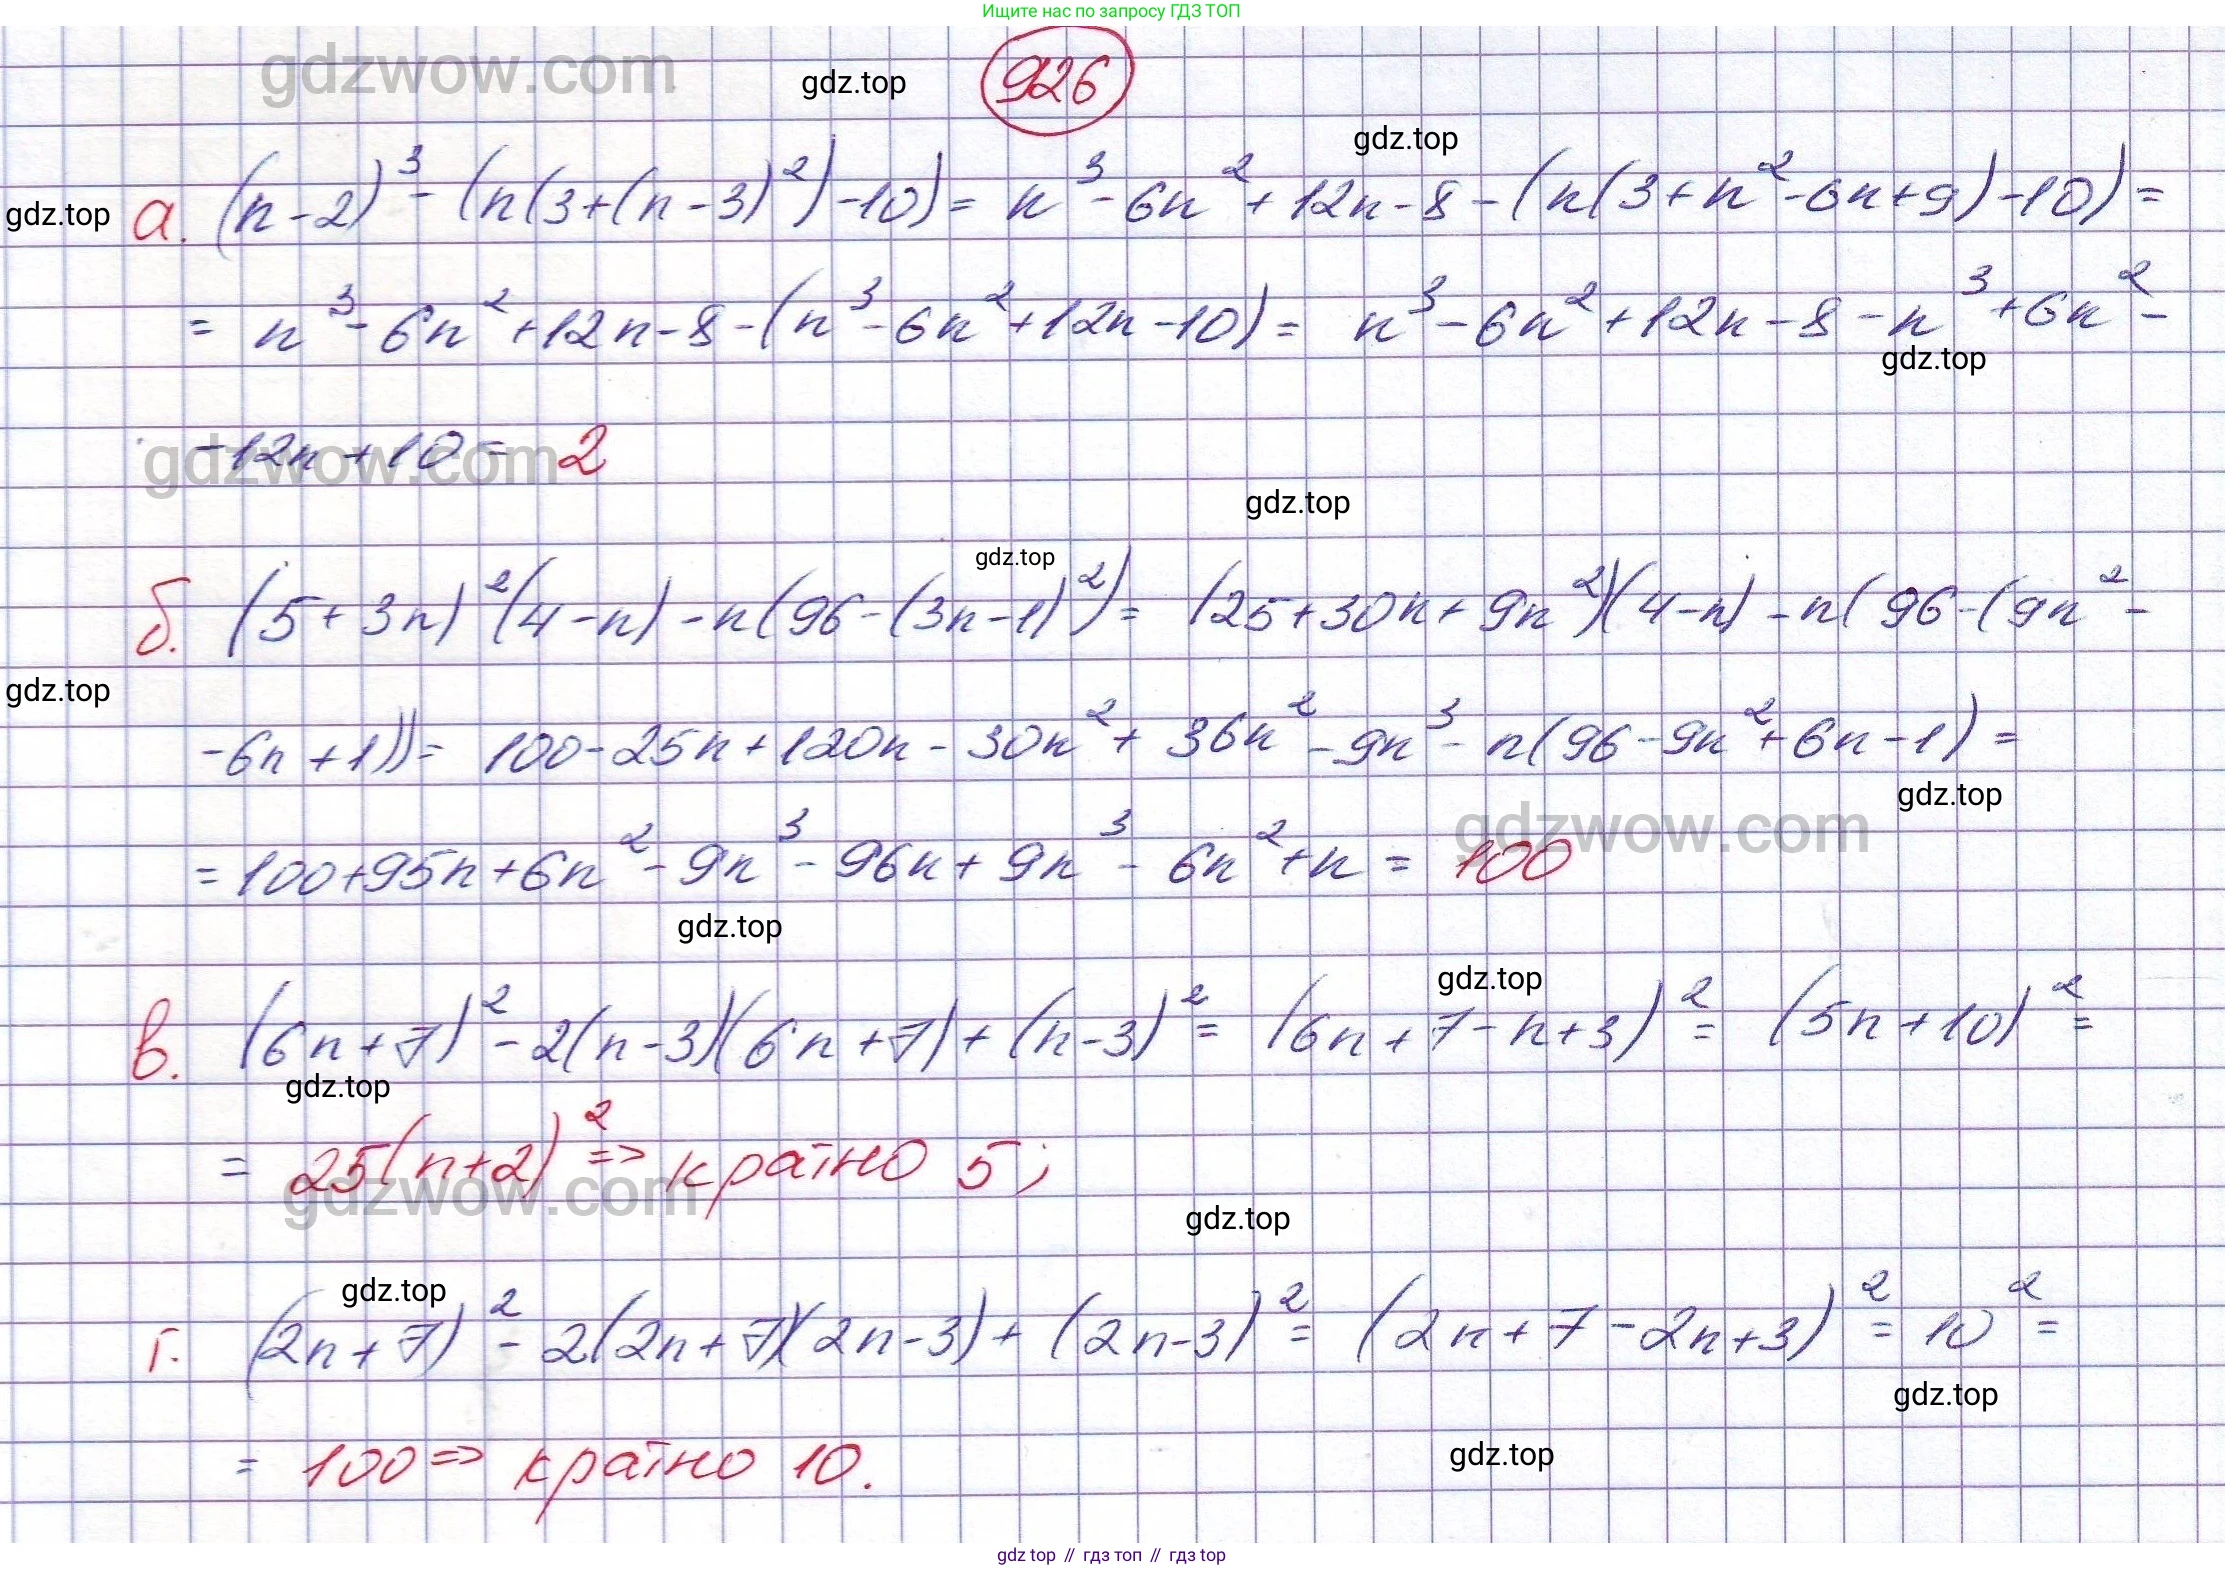 Ищите нас по запросу ГДЗ ТОП
gdzwow.com
gdz.top
926
gdz.top
gdz.top
а. (n-2)³-(n(3+(n-3)²)-10)= n³-6n²+12n-8-(n(3+n²-6n+9)-10)=
= n³-6n²+12n-8-(n³-6n²+12n-10)= n³-6n²+12n-8-n³+6n²-
gdz.top
-12n+10= 2
gdzwow.com
gdz.top
gdz.top
б. (5+3n)²(4-n)-n(96-(3n-1)²)= (25+30n+9n²)(4-n)-n(96-(9n²-
gdz.top
-6n+1))= 100-25n+120n-30n²+36n²-9n³-n(96-9n²+6n-1)=
gdz.top
gdzwow.com
=100+95n+6n²-9n³-96n+9n³-6n²+n= 100
gdz.top
gdz.top
в. (6n+7)²-2(n-3)(6n+7)+(n-3)²= (6n+7-n+3)²= (5n+10)²=
gdz.top
= 25(n+2)² => кратно 5;
gdzwow.com
gdz.top
gdz.top
г. (2n+7)²-2(2n+7)(2n-3)+(2n-3)²= (2n+7-2n+3)²= 10²=
gdz.top
= 100 => кратно 10.
gdz.top
gdz top // гдз топ // гдз top